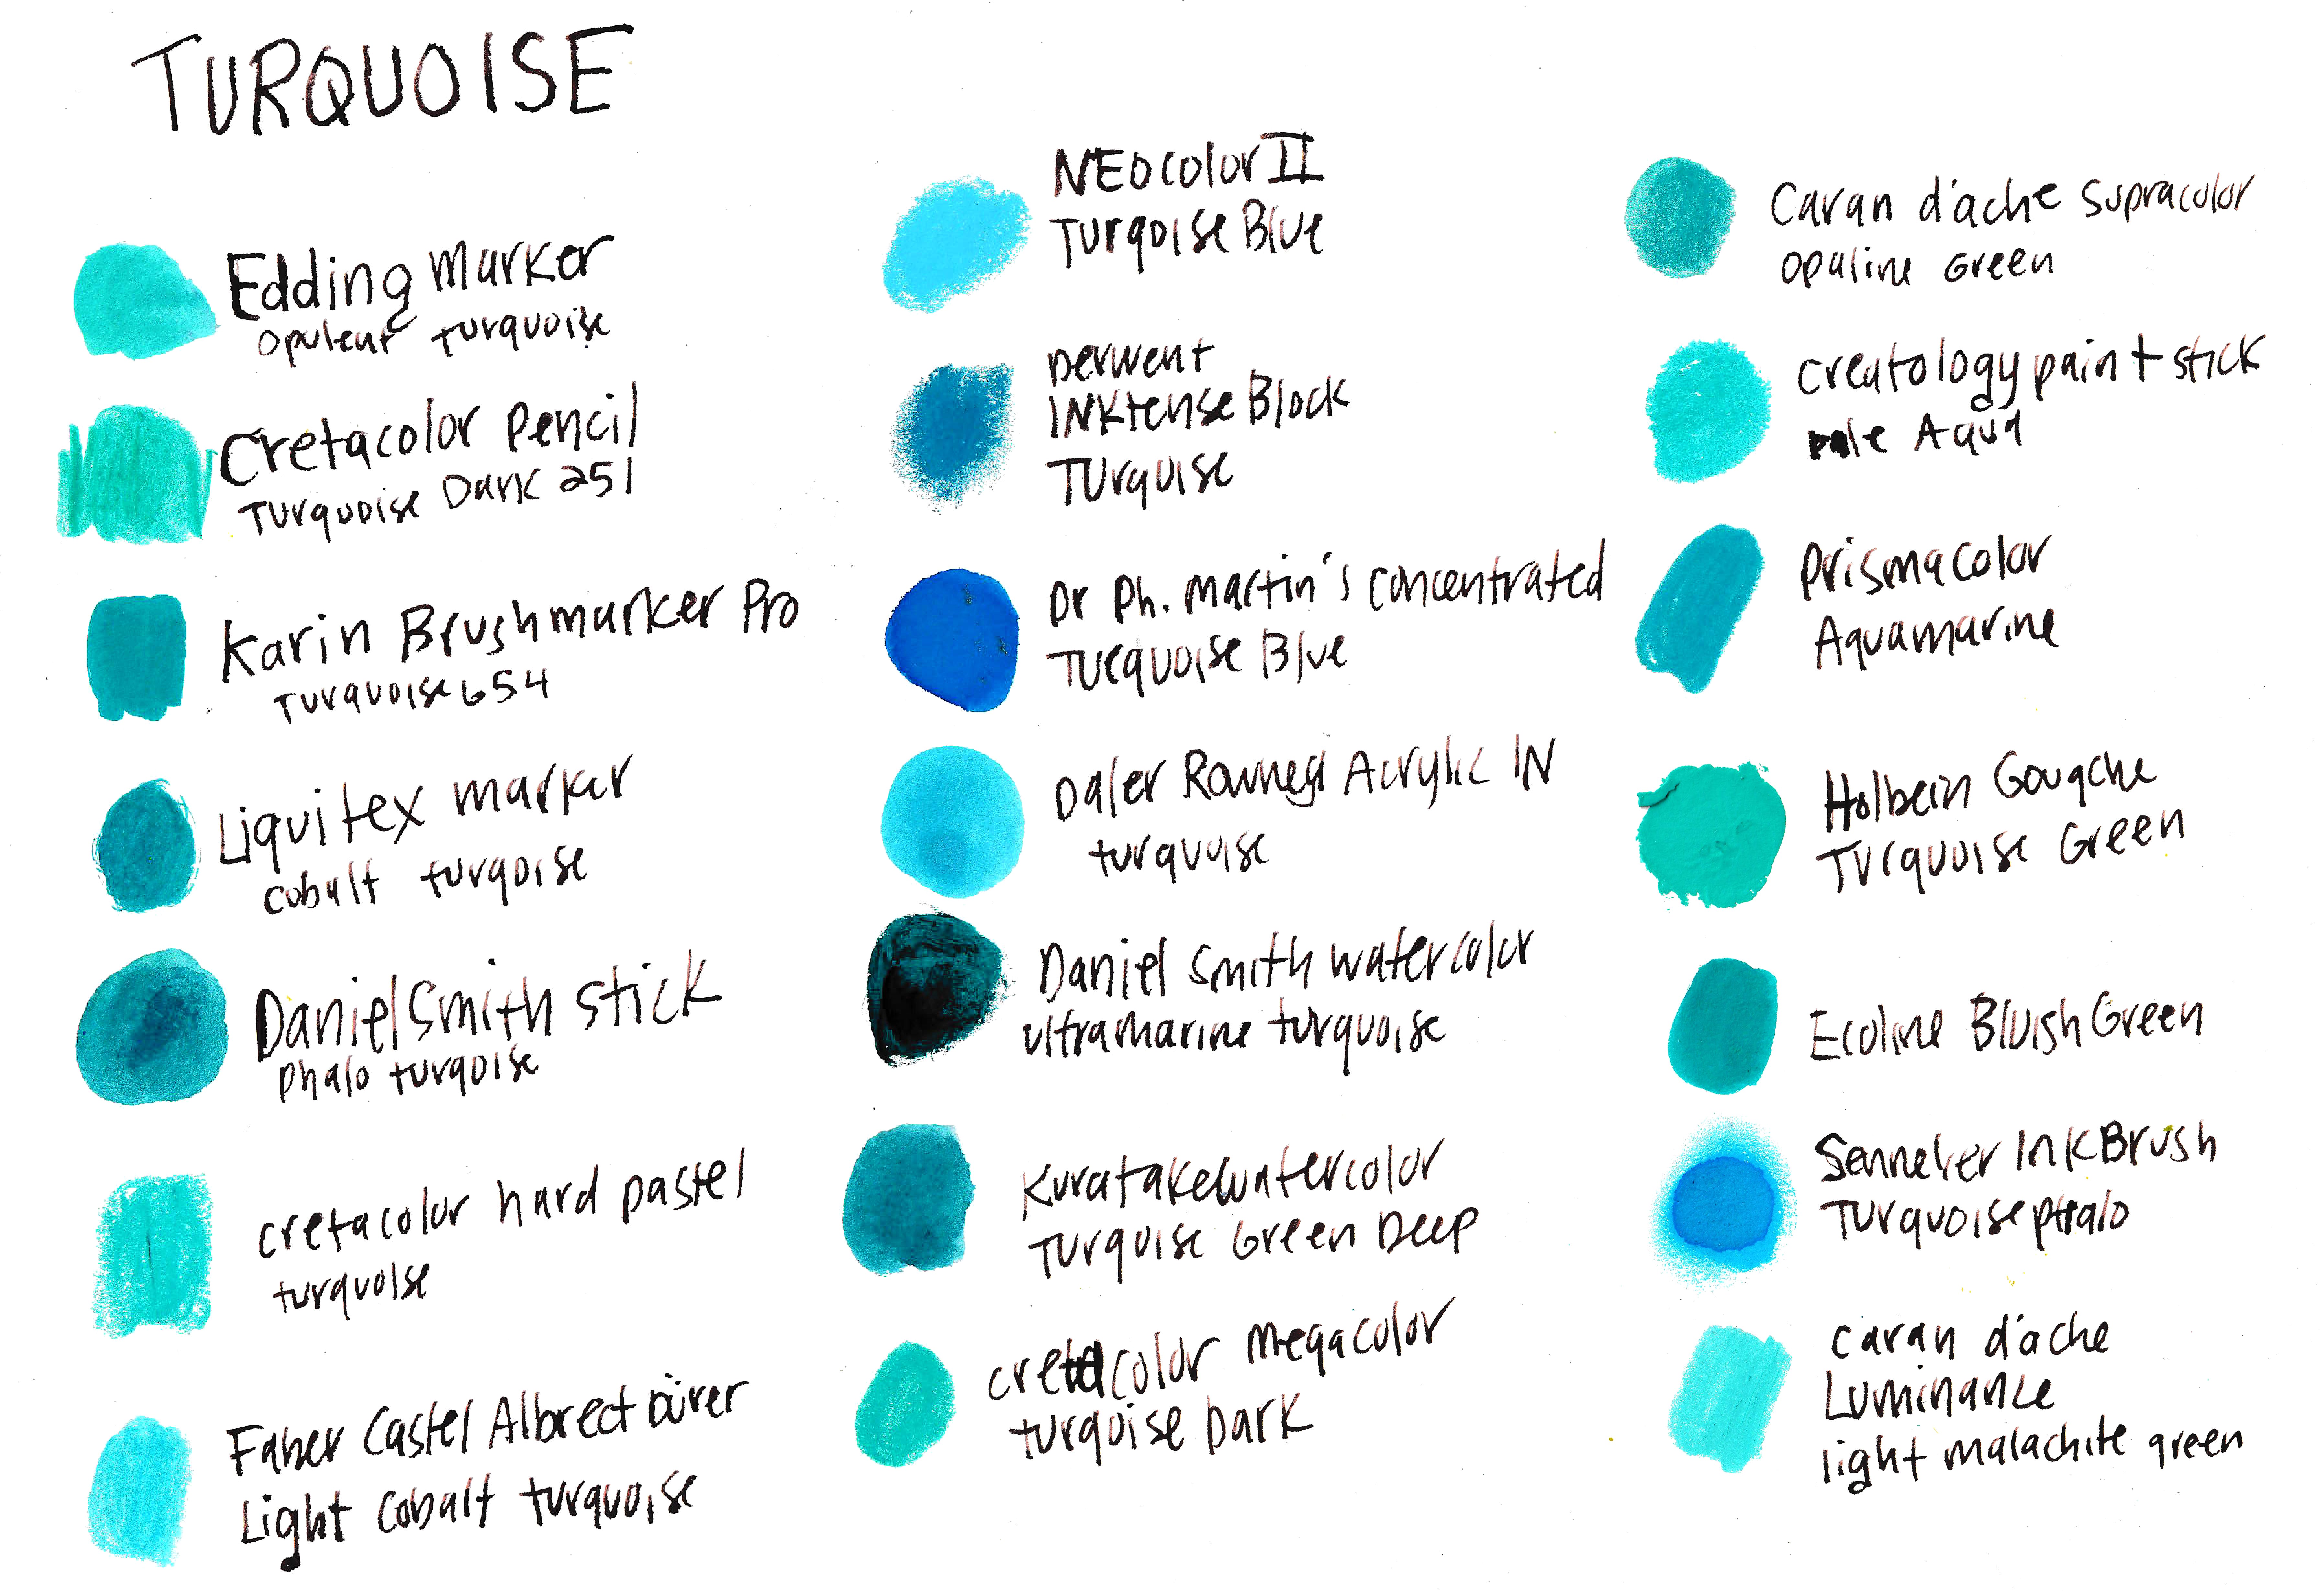 TURQUOISE
Edding marker
opulent turquoise
Cretacolor Pencil
Turquoise Dark 251
Karin Brushmarker Pro
Turquoise 654
Liquitex marker
cobalt turqoise
Daniel Smith stick
Phalo turqoise
cretacolor hard pastel
turquoise
Faber Castel Albrect Dürer
Light Cobalt turquoise
NEOcolor II
Turqoise Blue
Derwent
INKtense Block
Turquise
Dr Ph. Martin's concentrated
Turquoise Blue
Daler Rowney Acrylic IN
turquoise
Daniel Smith watercolor
ultramarine turquoise
Kuratake watercolor
Turquise Green Deep
cretacolor megacolor
turqoise Dark
Caran d'ache supracolor
opaline Green
Creatology paint stick
Pale Aqua
Prismacolor
Aquamarine
Holbein Gouache
Turquoise Green
Ecoline Bluish Green
Sennelier Ink Brush
Turquoise phtalo
caran d'ache
Luminance
light malachite green